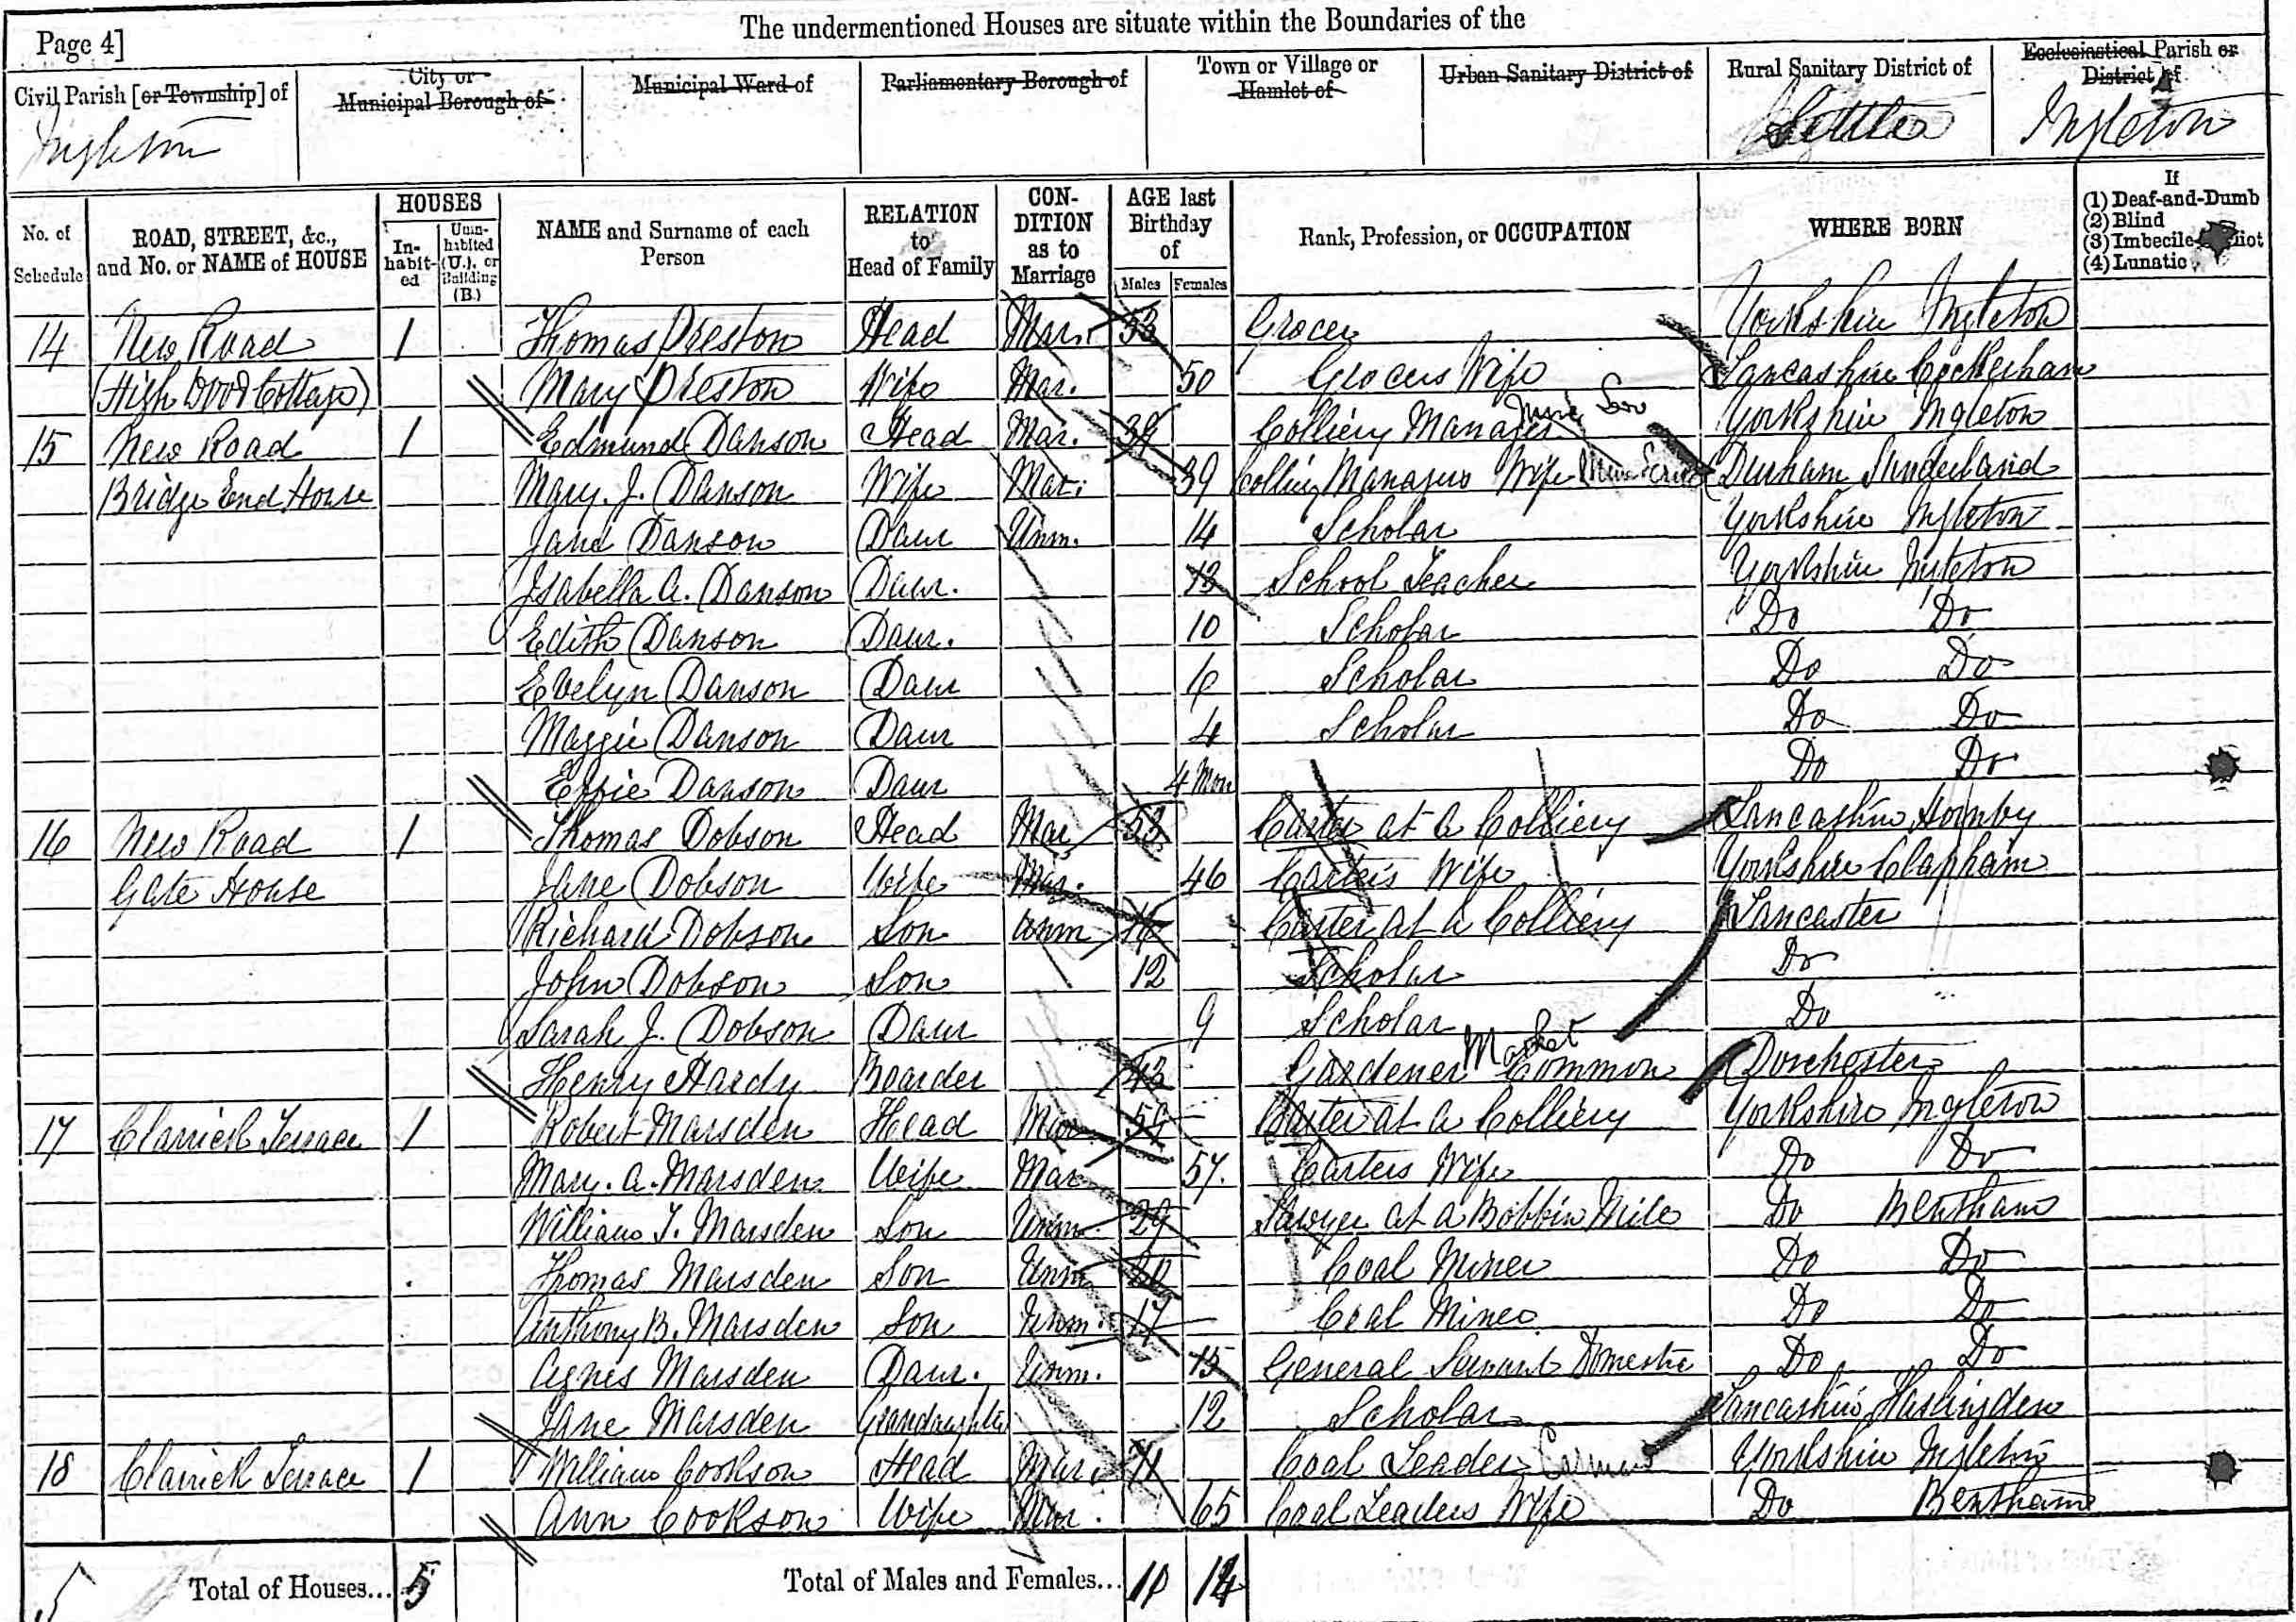 The undermentioned Houses are situate within the Boundaries of the
Page 4]
Civil Parish [or Township] of
City or Municipal Borough of
Municipal Ward of
Parliamentary Borough of
Town or Village or Hamlet of
Urban Sanitary District of
Rural Sanitary District of
Ecclesiastical Parish or District of
Ingleton Settle Ingleton
No. of Schedule
ROAD, STREET, &c., and No. or NAME of HOUSE
HOUSES
In-habit-ed
Unin-habited (U.), or Building (B.)
NAME and Surname of each Person
RELATION to Head of Family
CON-DITION as to Marriage
AGE last Birthday of
Males Females
Rank, Profession, or OCCUPATION
WHERE BORN
If
(1) Deaf-and-Dumb
(2) Blind
(3) Imbecile or Idiot
(4) Lunatic
14 New Road 1 Thomas Preston Head Mar. 53 Grocer Yorkshire Ingleton
(High Wood Cottage) Mary Preston Wife Mar. 50 Grocers Wife Lancashire Cockerham
15 New Road 1 Edmund Danson Head Mar. 39 Colliery Manager Mine Yorkshire Ingleton
Bridge End House Mary. J. Danson Wife Mar. 39 Colliery Managers Wife Durham Sunderland
Jane Danson Daur Unm. 14 Scholar Yorkshire Ingleton
Isabella A. Danson Daur. 13 School Teacher Yorkshire Ingleton
Edith Danson Daur. 10 Scholar Do Do
Evelyn Danson Daur 6 Scholar Do Do
Maggie Danson Daur 4 Scholar Do Do
Effie Danson Daur 4 Mon Do Do
16 New Road 1 Thomas Dobson Head Mar 53 Carter at a Colliery Lancashire Hornby
Gate House Jane Dobson Wife Mar. 46 Carters Wife Yorkshire Clapham
Richard Dobson Son Unm 16 Carter at a Colliery Lancaster
John Dobson Son 12 Scholar Do
Sarah J. Dobson Daur 9 Scholar Do
Henry Hardy Boarder 43 Gardener Market Common Dorchester
17 Clarrick Terrace 1 Robert Marsden Head Mar 59 Carter at a Colliery Yorkshire Ingleton
Mary. A. Marsden Wife Mar 57. Carters Wife Do Do
William T. Marsden Son Unm. 29 Sawyer at a Bobbin Mill Do Bentham
Thomas Marsden Son Unm 20 Coal Miner Do Do
Anthony B. Marsden Son Unm. 17 Coal Miner Do Do
Agnes Marsden Daur. Unm. 15 General Servant Domestic Do Do
Jane Marsden Grandaughter 12 Scholar Lancashire Haslingden
18 Clarrick Terrace 1 William Cookson Head Mar. 71 Coal Leader Carman Yorkshire Ingleton
Ann Cookson Wife Mar. 65 Coal Leaders Wife Do Bentham
5 Total of Houses... 5 Total of Males and Females... 11 14